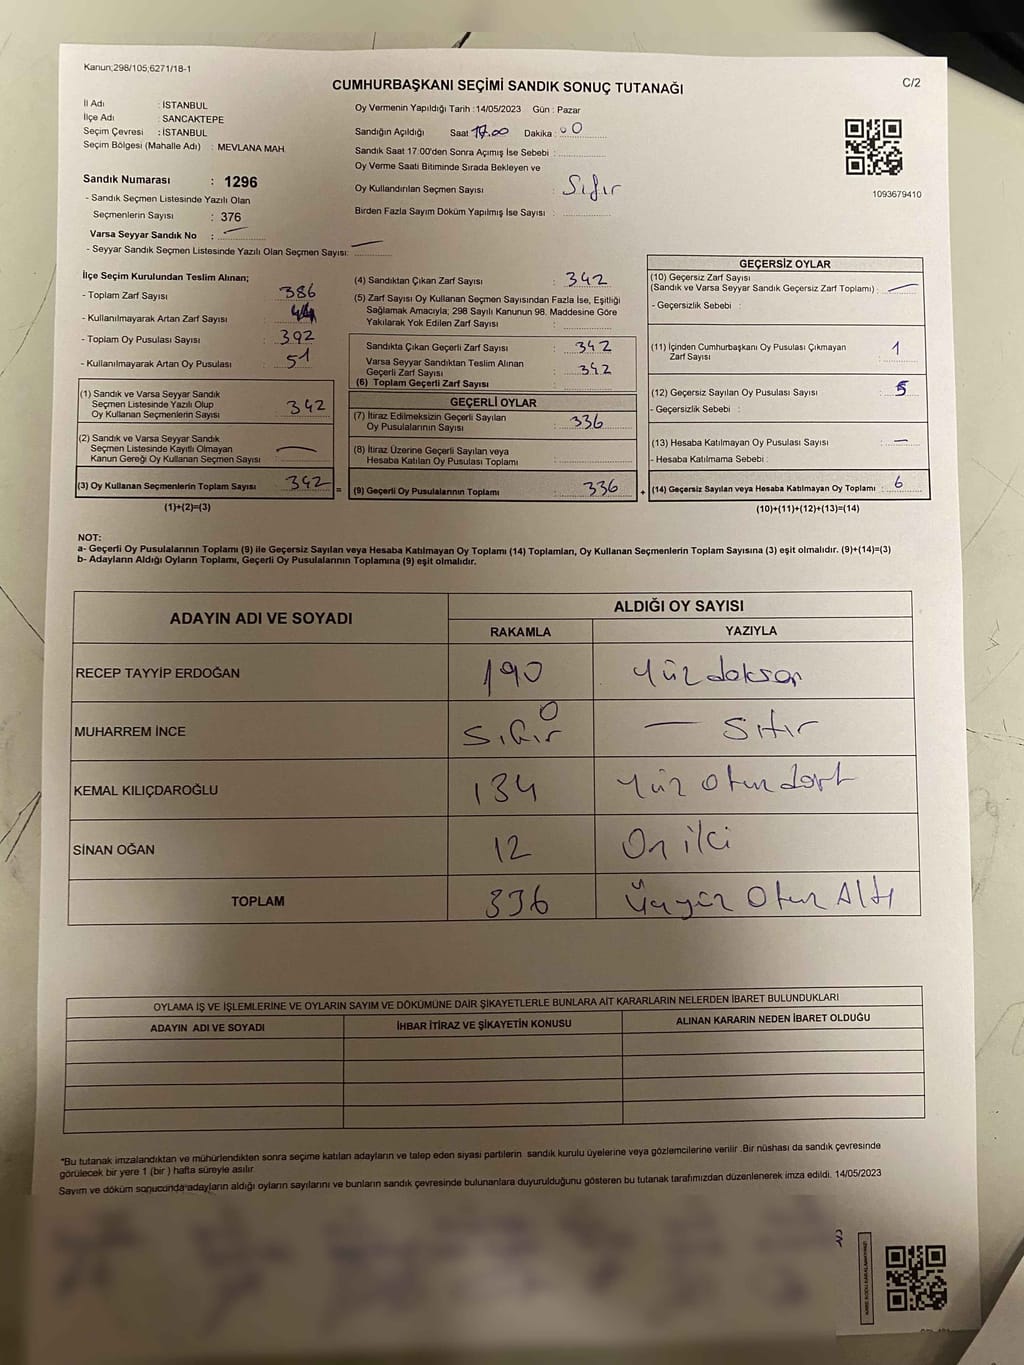 Kanun;298/105;6271/18-1
CUMHURBAŞKANI SEÇİMİ SANDIK SONUÇ TUTANAĞI
C/2
İl Adı : İSTANBUL
İlçe Adı : SANCAKTEPE
Seçim Çevresi : İSTANBUL
Seçim Bölgesi (Mahalle Adı) : MEVLANA MAH.
Sandık Numarası : 1296
- Sandık Seçmen Listesinde Yazılı Olan
Seçmenlerin Sayısı : 376
Varsa Seyyar Sandık No : —
- Seyyar Sandık Seçmen Listesinde Yazılı Olan Seçmen Sayısı: —
Oy Vermenin Yapıldığı Tarih : 14/05/2023 Gün : Pazar
Sandığın Açıldığı Saat 17.00 Dakika : 00
Sandık Saat 17:00'den Sonra Açımış İse Sebebi :
Oy Verme Saati Bitiminde Sırada Bekleyen ve
Oy Kullandırılan Seçmen Sayısı : Sıfır
Birden Fazla Sayım Döküm Yapılmış İse Sayısı :
1093679410
İlçe Seçim Kurulundan Teslim Alınan;
- Toplam Zarf Sayısı : 386
- Kullanılmayarak Artan Zarf Sayısı : 44
- Toplam Oy Pusulası Sayısı : 392
- Kullanılmayarak Artan Oy Pusulası : 51
(1) Sandık ve Varsa Seyyar Sandık
Seçmen Listesinde Yazılı Olup
Oy Kullanan Seçmenlerin Sayısı : 342
(2) Sandık ve Varsa Seyyar Sandık
Seçmen Listesinde Kayıtlı Olmayan
Kanun Gereği Oy Kullanan Seçmen Sayısı : —
(3) Oy Kullanan Seçmenlerin Toplam Sayısı : 342
(1)+(2)=(3)
=
(4) Sandıktan Çıkan Zarf Sayısı : 342
(5) Zarf Sayısı Oy Kullanan Seçmen Sayısından Fazla İse, Eşitliği
Sağlamak Amacıyla; 298 Sayılı Kanunun 98. Maddesine Göre
Yakılarak Yok Edilen Zarf Sayısı :
Sandıkta Çıkan Geçerli Zarf Sayısı : 342
Varsa Seyyar Sandıktan Teslim Alınan
Geçerli Zarf Sayısı : 342
(6) Toplam Geçerli Zarf Sayısı
GEÇERLİ OYLAR
(7) İtiraz Edilmeksizin Geçerli Sayılan
Oy Pusulalarının Sayısı : 336
(8) İtiraz Üzerine Geçerli Sayılan veya
Hesaba Katılan Oy Pusulası Toplamı :
(9) Geçerli Oy Pusulalarının Toplamı : 336
+
GEÇERSİZ OYLAR
(10) Geçersiz Zarf Sayısı
(Sandık ve Varsa Seyyar Sandık Geçersiz Zarf Toplamı) : —
- Geçersizlik Sebebi :
(11) İçinden Cumhurbaşkanı Oy Pusulası Çıkmayan
Zarf Sayısı : 1
(12) Geçersiz Sayılan Oy Pusulası Sayısı : 5
- Geçersizlik Sebebi :
(13) Hesaba Katılmayan Oy Pusulası Sayısı : —
- Hesaba Katılmama Sebebi :
(14) Geçersiz Sayılan veya Hesaba Katılmayan Oy Toplamı : 6
(10)+(11)+(12)+(13)=(14)
NOT:
a- Geçerli Oy Pusulalarının Toplamı (9) ile Geçersiz Sayılan veya Hesaba Katılmayan Oy Toplamı (14) Toplamları, Oy Kullanan Seçmenlerin Toplam Sayısına (3) eşit olmalıdır. (9)+(14)=(3)
b- Adayların Aldığı Oyların Toplamı, Geçerli Oy Pusulalarının Toplamına (9) eşit olmalıdır.
ADAYIN ADI VE SOYADI
ALDIĞI OY SAYISI
RAKAMLA YAZIYLA
RECEP TAYYİP ERDOĞAN 190 Yüz doksan
MUHARREM İNCE Sıfır 0 — Sıfır
KEMAL KILIÇDAROĞLU 134 Yüz Otuz dört
SİNAN OĞAN 12 On iki
TOPLAM 336 Üçyüz Otuz Altı
OYLAMA İŞ VE İŞLEMLERİNE VE OYLARIN SAYIM VE DÖKÜMÜNE DAİR ŞİKAYETLERLE BUNLARA AİT KARARLARIN NELERDEN İBARET BULUNDUKLARI
ADAYIN ADI VE SOYADI İHBAR İTİRAZ VE ŞİKAYETİN KONUSU ALINAN KARARIN NEDEN İBARET OLDUĞU
*Bu tutanak imzalandıktan ve mühürlendikten sonra seçime katılan adayların ve talep eden siyasi partilerin sandık kurulu üyelerine veya gözlemcilerine verilir .Bir nüshası da sandık çevresinde
görülecek bir yere 1 (bir ) hafta süreyle asılır.
Sayım ve döküm sonucunda adayların aldığı oyların sayılarını ve bunların sandık çevresinde bulunanlara duyurulduğunu gösteren bu tutanak tarafımızdan düzenlenerek imza edildi. 14/05/2023